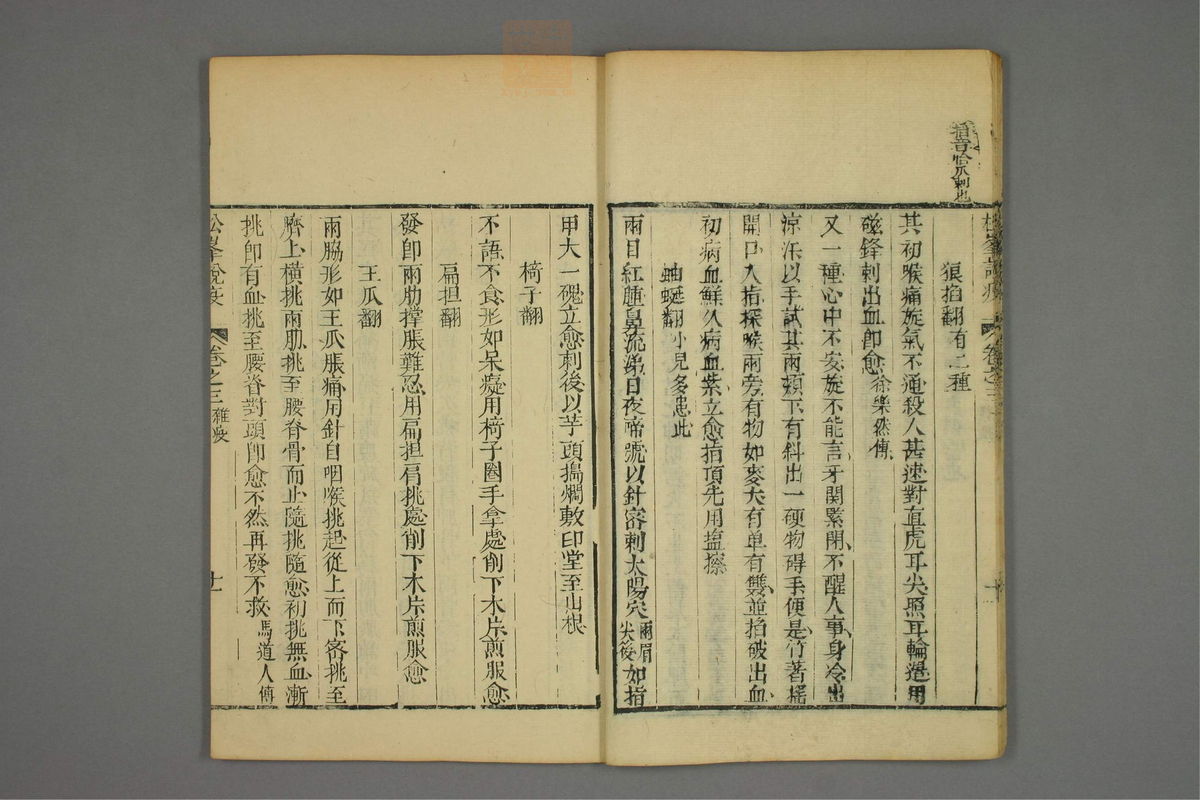 掐音恰爪刺也
狠掐翻有二種
其初喉痛旋氣不通殺人甚速對直虎耳尖照耳輪邊用
磁鋒刺出血卽愈徐樂然傳
又一種心中不安旋不能言牙關緊閉不醒人事身冷出
涼汗以手試其兩頰下有斜出一硬物碍手便是竹著樞
開口入指探喉兩旁有物如麥大有单有雙並掐破出血
初病血鮮久病血紫立愈指頂先用塩擦
蚰蜒翻小兒多患此
兩目紅腫鼻流涕日夜啼號以針密刺太陽穴兩眉尖後如指
甲大一磈立愈刺後以芋頭搗爛敷印堂至山根
椅子翻
不語不食形如呆癡用椅子圈手拿處削下木片煎服愈
扁担翻
發卽兩肋撑脹難忍用扁担肩挑處削下木片煎服愈
王瓜翻
兩脇形如王瓜脹痛用針自咽喉挑起從上而下密挑至
臍上橫挑兩肋挑至腰脊骨而止隨挑隨愈初挑無血漸
挑卽有血挑至腰脊對頭卽愈不然再發不救馬道人傳
松峯說疫
卷之三
雜疫
十一